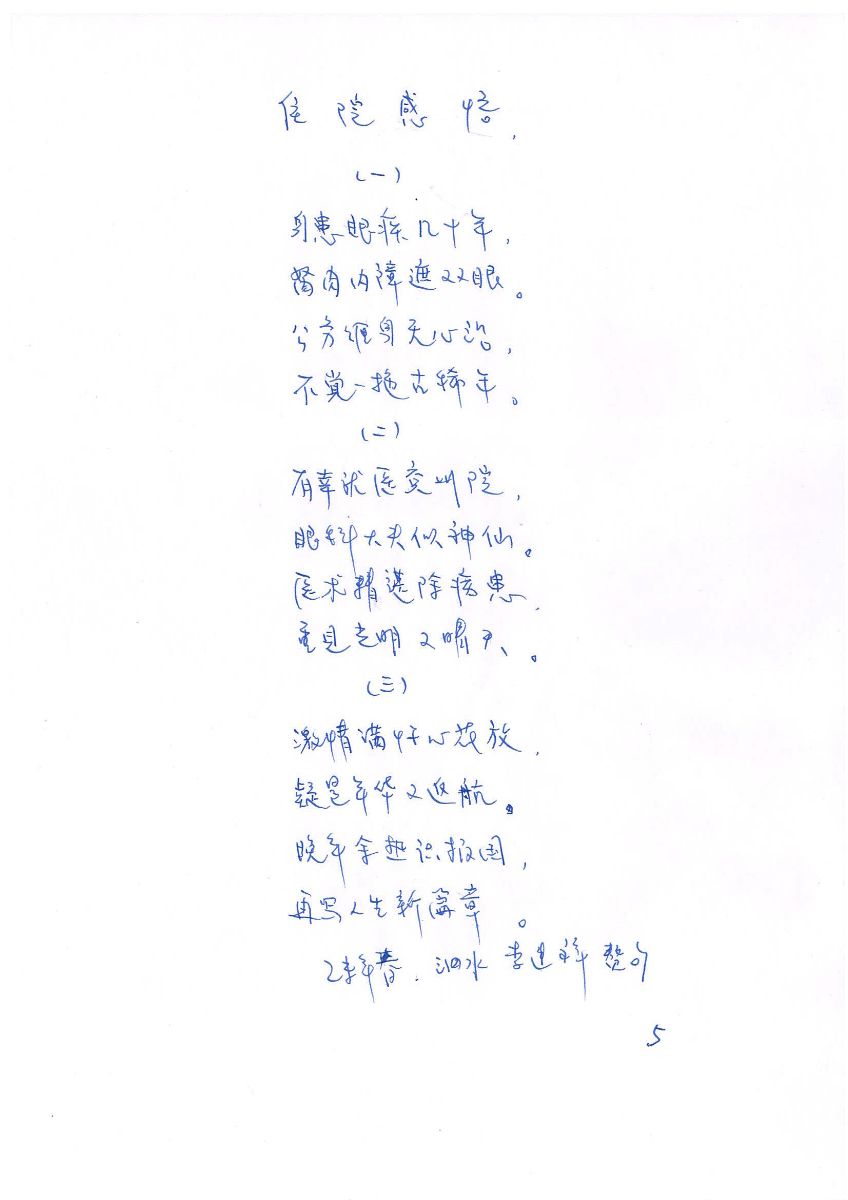 住院感悟,
(一)
身患眼疾几十年,
胬肉内障遮双眼。
公务缠身无心治,
不觉一拖古稀年。
(二)
有幸求医兖州院,
眼科大夫似神仙。
医术精湛除病患,
重见光明又曙天。
(三)
激情满怀心花放,
疑是年华又返航。
晚年余热识报国,
再写人生新篇章。
乙未年春.泗水 李建祥
5